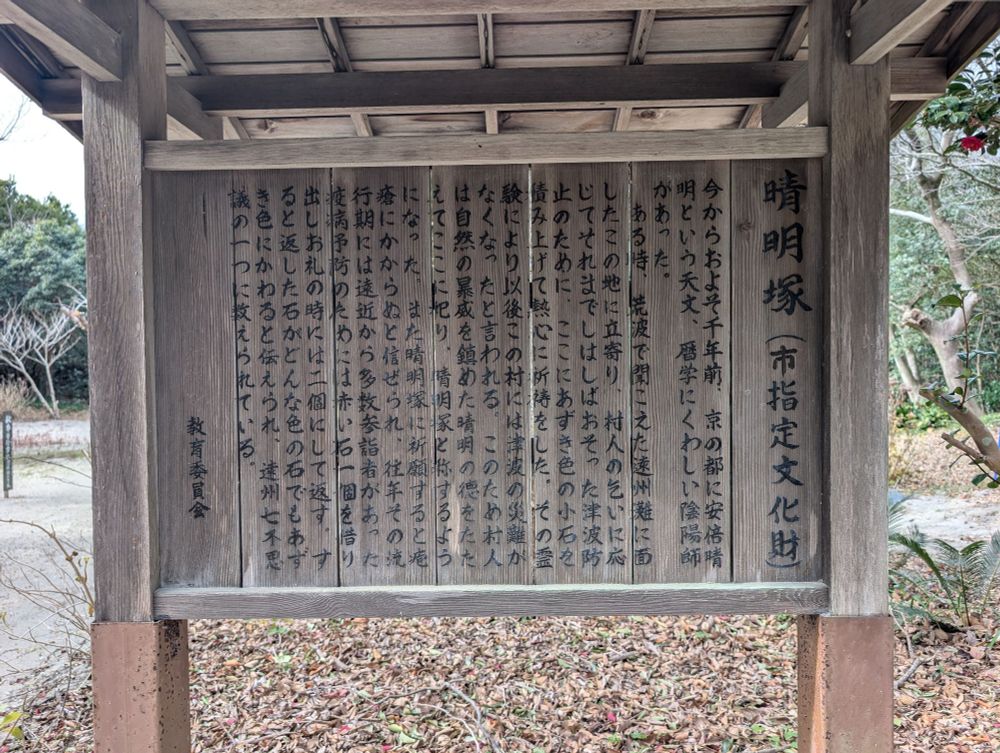 晴明塚（市指定文化財）
今からおよそ千年前、京の都に安倍晴
明という天文、暦学にくわしい陰陽師
があった。
ある時、荒波で聞こえた遠州灘に面
したこの地に立寄り、村人の乞いに応
じてそれまでしばしばおそった津波防
止のために、ここにあずき色の小石を
積み上げて熱心に祈祷をした。その霊
験により以後この村には津波の災難が
なくなったと言われる。このため村人
は自然の暴威を鎮めた晴明の徳をたた
えてここに祀り、晴明塚と称するよう
になった。また晴明塚に祈願すると疱
瘡にかからぬと信ぜられ、往年その流
行期には遠近から多数参詣者があった
疫病予防のためには赤い石一個を借り
出しお礼の時には二個にして返す す
ると返した石がどんな色の石でもあず
き色にかわると伝えられ、遠州七不思
議の一つに数えられている。
教育委員会